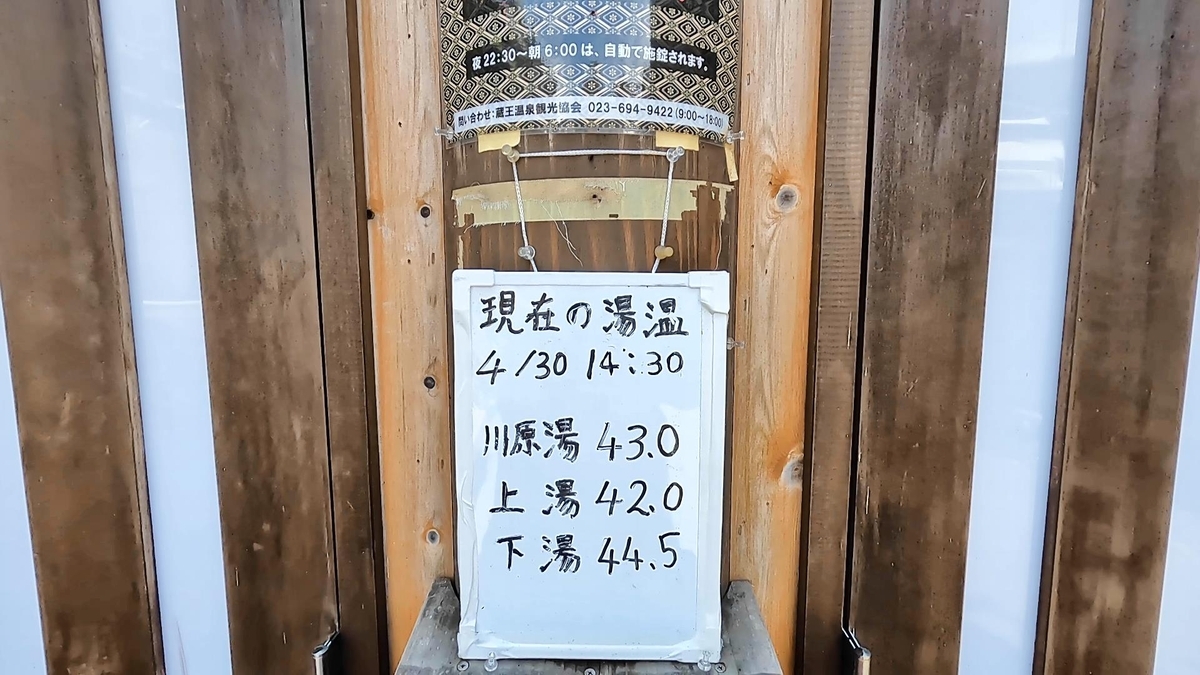 夜22:30〜朝6:00は、自動で施錠されます。
問い合わせ:蔵王温泉観光協会 023-694-9422(9:00〜18:00)
現在の湯温
4/30 14:30
川原湯 43.0
上湯 42.0
下湯 44.5